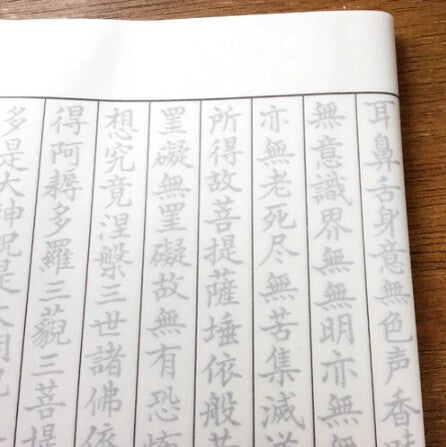 耳鼻舌身意無色声香
無意識界無無明亦無
亦無老死尽無苦集滅
所得故菩提薩埵依般
罣礙無罣礙故無有恐
想究竟涅槃三世諸佛依
得阿耨多羅三藐三菩提
多是大神呪是大明呪